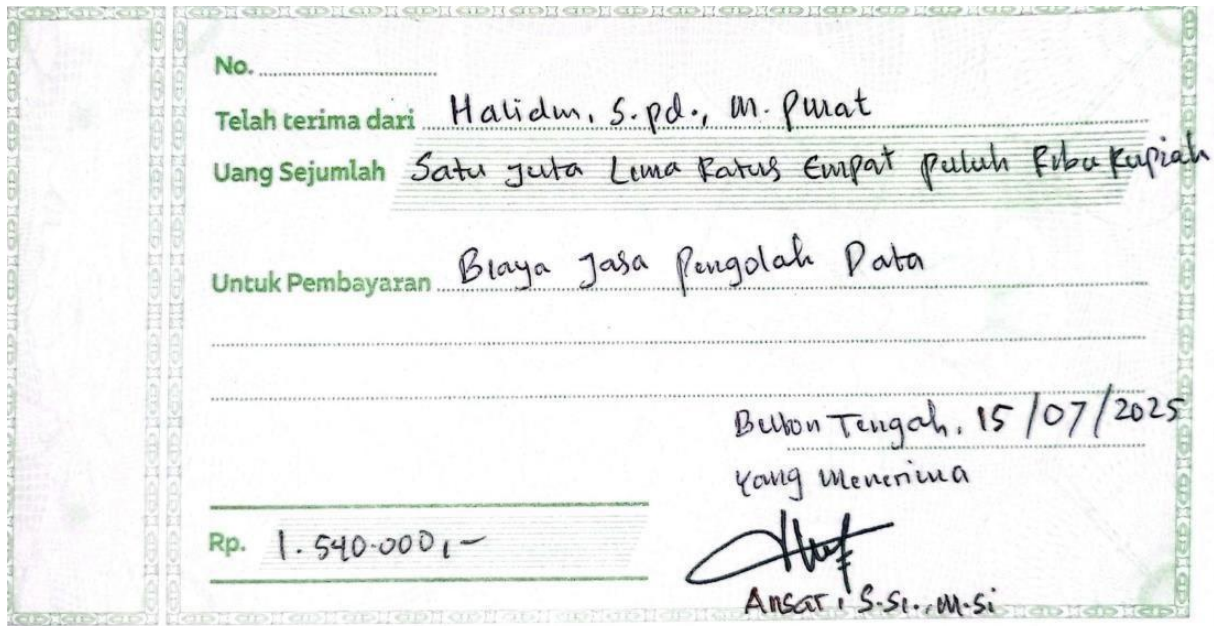 No.
Telah terima dari Halidin, S.pd., M.Pmat
Uang Sejumlah Satu Juta Lima Ratus Empat Puluh Ribu Rupiah
Untuk Pembayaran Biaya Jasa Pengolah Data
Buton Tengah, 15/07/2025
Yang Menerima
Rp. 1.540.000,-
Ansar, S.Si., M.Si